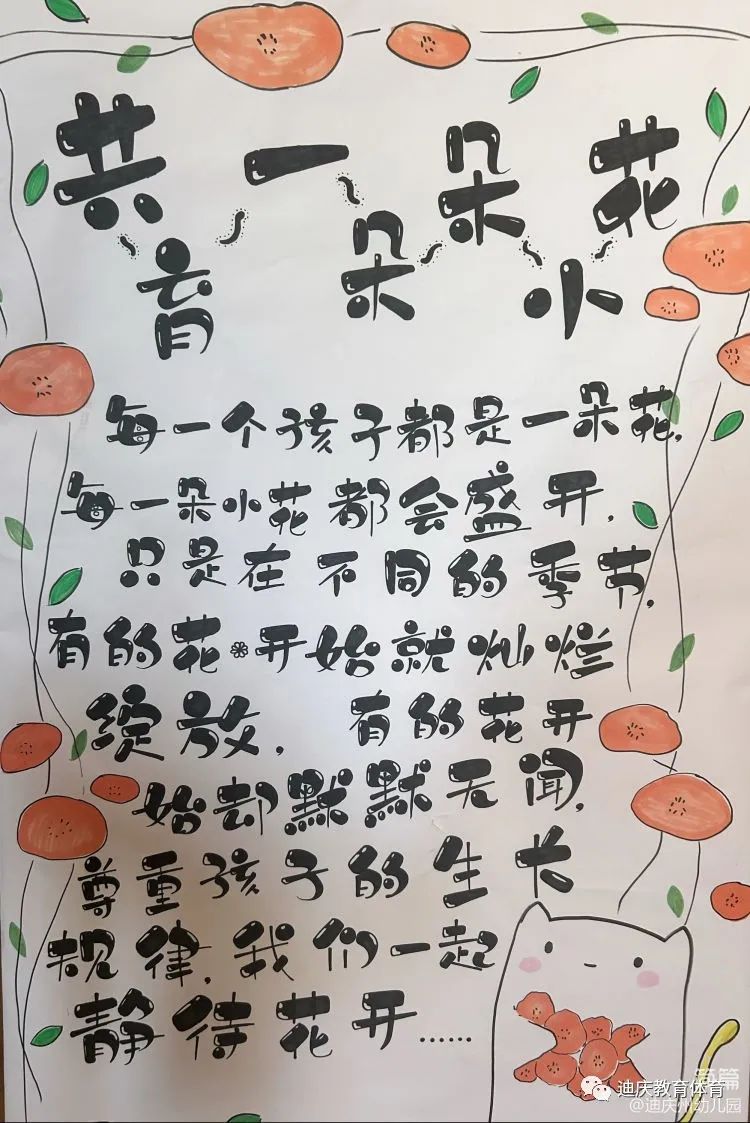 共育一朵朵小花
每一个孩子都是一朵花,
每一朵小花都会盛开,
只是在不同的季节,
有的花开始就灿烂
绽放, 有的花开
始却默默无闻,
尊重孩子的生长
规律,我们一起
静待花开……
迪庆教育体育
@迪庆州幼儿园